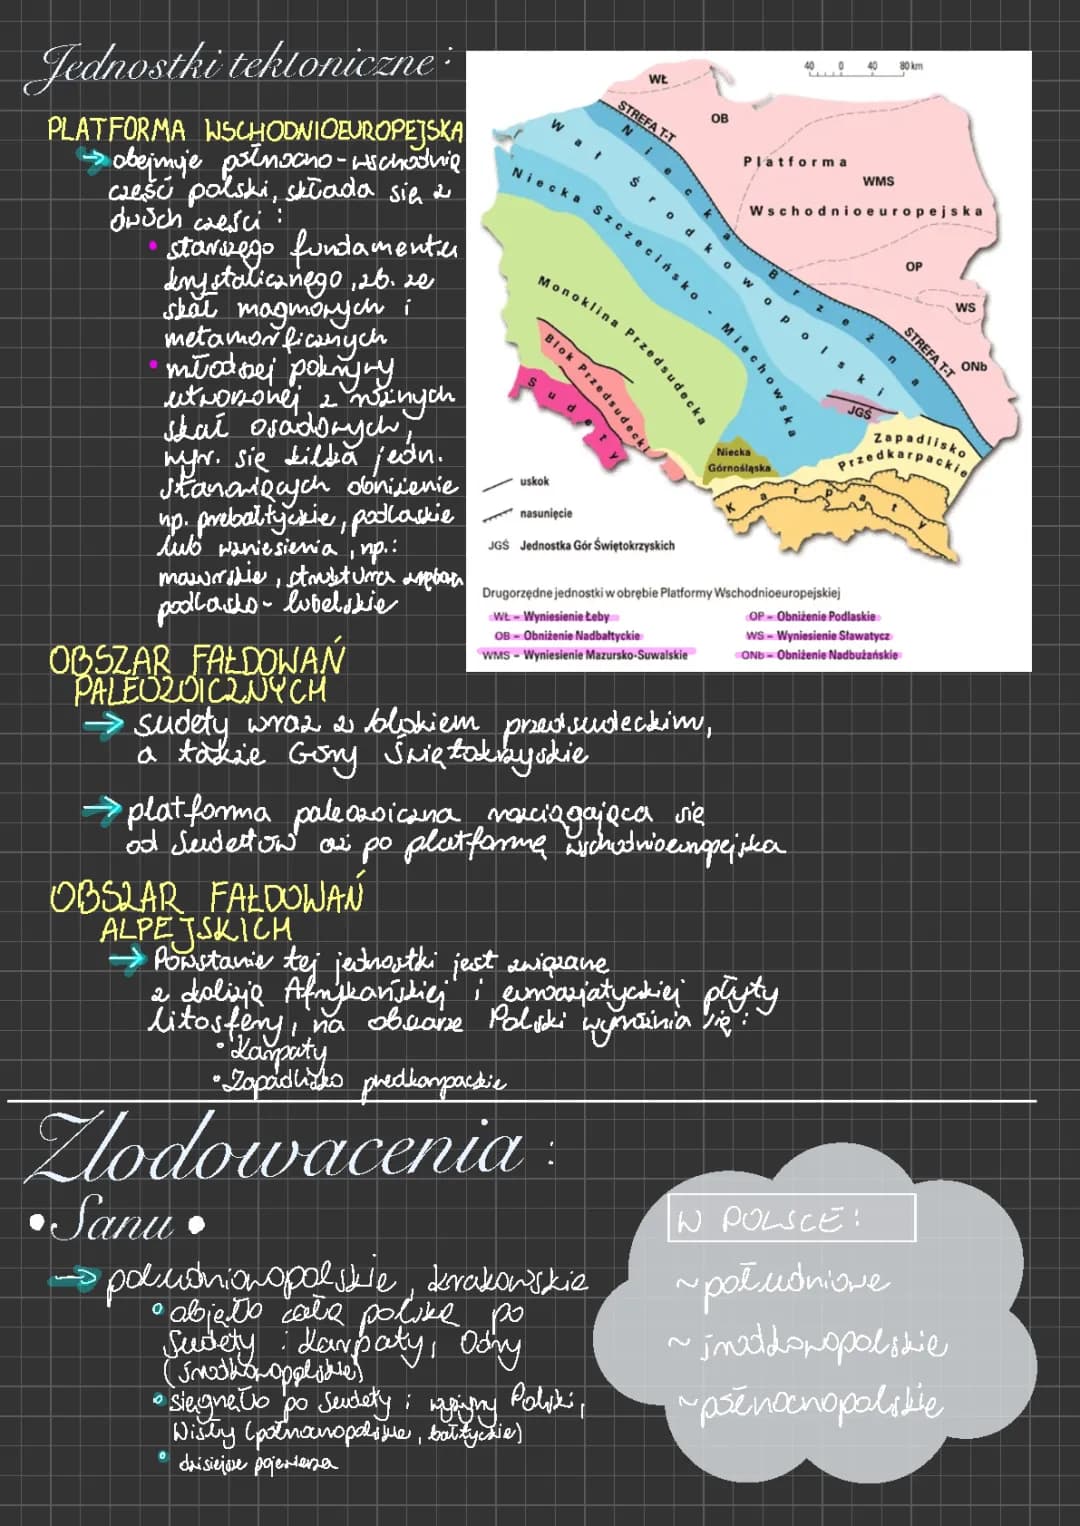 Jednostki tektoniczne:
PLATFORMA WSCHODNIOEUROPEJSKA
→ obejmuje północno-wschodnią
część polski, składa się z
dwóch części:
• starszego fundamentu
krystalicznego, zb. ze
skał magmowych i
metamorficznych
• młodszej pokrywy
utworzonej z różnych
skał osadowych,
wyr. się kilka jedn.
stanowiących obniżenie
np. prebałtyckie, podlaskie
lub wzniesienia, np.:
mazurskie, struktura
podlasko-lubelskie
40 0 40 80 km
WŁ
OB
STREFA T-T
Platforma
WMS
Wschodnioeuropejska
OP
WS
STREFA T-T
ONb
Niecka Brzeżna
Wał Środkowopolski
Niecka Szczecińsko - Miechowska
Monoklina Przedsudecka
Blok Przedsudecki
Sudety
JGŚ
Niecka
Górnośląska
Zapadlisko
Przedkarpackie
Karpaty
uskok
nasunięcie
JGŚ Jednostka Gór Świętokrzyskich
Drugorzędne jednostki w obrębie Platformy Wschodnioeuropejskiej
WŁ – Wyniesienie Łeby
OP – Obniżenie Podlaskie
OB – Obniżenie Nadbałtyckie
WS – Wyniesienie Sławatycz
WMS – Wyniesienie Mazursko-Suwalskie
ONb – Obniżenie Nadbużańskie
OBSZAR FAŁDOWAŃ
PALEOZOICZNYCH
→ sudety wraz z blokiem przedsudeckim,
a także Góry Świętokrzyskie
→ platforma paleozoiczna rozciągająca się
od Sudetów aż po platformę wschodnioeuropejska
OBSZAR FAŁDOWAŃ
ALPEJSKICH
→ Powstanie tej jednostki jest związane
z kolizją Afrykańskiej i euroazjatyckiej płyty
litosfery, na obszarze Polski wyróżnia się:
• Karpaty
• Zapadlisko predkarpackie
Zlodowacenia:
• Sanu •
→ południowopolskie, krakowskie
∘ objęło całą polskę po
Sudety i Karpaty, Odry
(środkowopolskie)
∘ sięgnęło po Sudety i wyżyny Polski,
Wisły (północnopolskie, bałtyckie)
∘ dzisiejsze pojezierza
W POLSCE:
~ południowe
~ środkowopolskie
~ północnopolskie